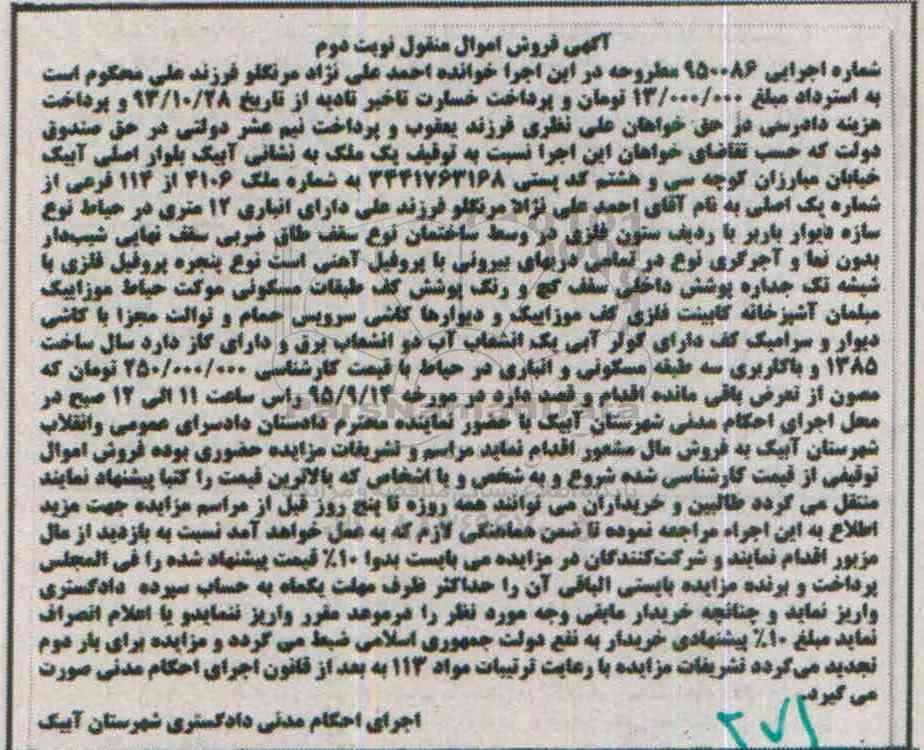 آگهی فروش اموال منقول نوبت دوم
شماره اجرایی ۹۵۰۰۸۶ مطروحه در این اجرا خوانده احمد علی نژاد مرنگلو فرزند علی محکوم است
به استرداد مبلغ ۱۳/۰۰۰/۰۰۰ تومان و پرداخت خسارت تاخیر تادیه از تاریخ ۹۳/۱۰/۲۸ و پرداخت
هزینه دادرسی در حق خواهان علی نظری فرزند یعقوب و پرداخت نیم عشر دولتی در حق صندوق
دولت که حسب تقاضای خواهان این اجرا نسبت به توقیف یک ملک به نشانی آبیک بلوار اصلی آبیک
خیابان مبارزان کوچه سی و هشتم کد پستی ۳۴۴۱۷۶۳۱۶۸ به شماره ملک ۴۱۰۶ از ۱۱۴ فرعی از
شماره یک اصلی به نام آقای احمد علی نژاد مرنگلو فرزند علی دارای انباری ۱۲ متری در حیاط نوع
سازه دیوار باربر با ردیف ستون فلزی در وسط ساختمان نوع سقف طاق ضربی سقف نهایی شیبدار
بدون نما و آجرگری نوع در تمامی دربهای بیرونی با پروفیل آهنی است نوع پنجره پروفیل فلزی با
شیشه تک جداره پوشش داخلی سقف گچ و رنگ پوشش کف طبقات مسکونی موکت حیاط موزاییک
مبلمان آشپزخانه کابینت فلزی کف موزاییک و دیوارها کاشی سرویس حمام و توالت مجزا با کاشی
دیوار و سرامیک کف دارای کولر آبی یک انشعاب آب دو انشعاب برق و دارای گاز دارد سال ساخت
۱۳۸۵ و باکاربری سه طبقه مسکونی و انباری در حیاط با قیمت کارشناسی ۲۵۰/۰۰۰/۰۰۰ تومان که
مصون از تعرض باقی مانده اقدام و قصد دارد در مورخه ۹۵/۹/۱۴ راس ساعت ۱۱ الی ۱۲ صبح در
محل اجرای احکام مدنی شهرستان آبیک با حضور نماینده محترم دادستان دادسرای عمومی وانقلاب
شهرستان آبیک به فروش مال مشعور اقدام نماید مراسم و تشریفات مزایده حضوری بوده فروش اموال
توقیفی از قیمت کارشناسی شده شروع و به شخص و یا اشخاص که بالاترین قیمت را کتبا پیشنهاد نمایند
منتقل می گردد طالبین و خریداران می توانند همه روزه تا پنج روز قبل از مراسم مزایده جهت مزید
اطلاع به این اجراء مراجعه نموده تا ضمن هماهنگی لازم که به عمل خواهد آمد نسبت به بازدید از مال
مزبور اقدام نمایند و شرکت‌کنندگان در مزایده می بایست بدوا ۱۰٪ قیمت پیشنهاد شده را فی المجلس
پرداخت و برنده مزایده بایستی الباقی آن را حداکثر ظرف مهلت یکماه به حساب سپرده دادگستری
واریز نماید و چنانچه خریدار مابقی وجه مورد نظر را درموعد مقرر واریز ننمایدو یا اعلام انصراف
نماید مبلغ ۱۰٪ پیشنهادی خریدار به نفع دولت جمهوری اسلامی ضبط می گردد و مزایده برای بار دوم
تجدید می‌گردد تشریفات مزایده با رعایت ترتیبات مواد ۱۱۳ به بعد از قانون اجرای احکام مدنی صورت
می گیرد.
اجرای احکام مدنی دادگستری شهرستان آبیک
ParsNamadData